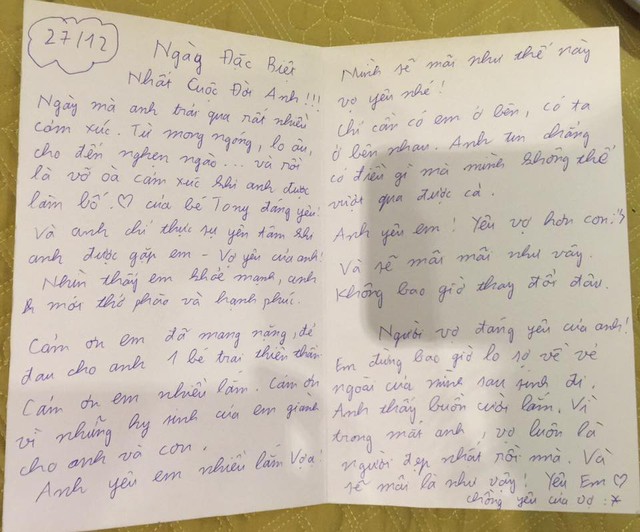 27/12
Ngày Đặc Biệt
Nhất Cuộc Đời Anh!!!
Ngày mà anh trải qua rất nhiều
cảm xúc. Từ mong ngóng, lo âu,
cho đến nghẹn ngào... và rồi
là vỡ oà cảm xúc khi anh được
làm bố. ♡ của bé Tony đáng yêu!
Và anh chỉ thực sự yên tâm khi
anh được gặp em - Vợ yêu của anh!
Nhìn thấy em khoẻ mạnh, anh
mới thở phào và hạnh phúc.
Cảm ơn em đã mang nặng, đẻ
đau cho anh 1 bé trai thiên thần
Cảm ơn em nhiều lắm. Cảm ơn
vì những hy sinh của em giành
cho anh và con.
Anh yêu em nhiều lắm Vợ ạ!
Mình sẽ mãi như thế này
vợ yêu nhé!
Chỉ cần có em ở bên, có ta
ở bên nhau. Anh tin chẳng
có điều gì mà mình không thể
vượt qua được cả.
Anh yêu em! Yêu vợ hơn con!
Và sẽ mãi mãi như vậy.
Không bao giờ thay đổi đâu.
Người vợ đáng yêu của anh!
Em đừng bao giờ lo sợ về vẻ
ngoài của mình sau sinh đi.
Anh thấy buồn cười lắm. Vì
trong mắt anh, vợ luôn là
người đẹp nhất rồi mà. Và
sẽ mãi là như vậy! Yêu Em ♡
chồng yêu của vợ :*